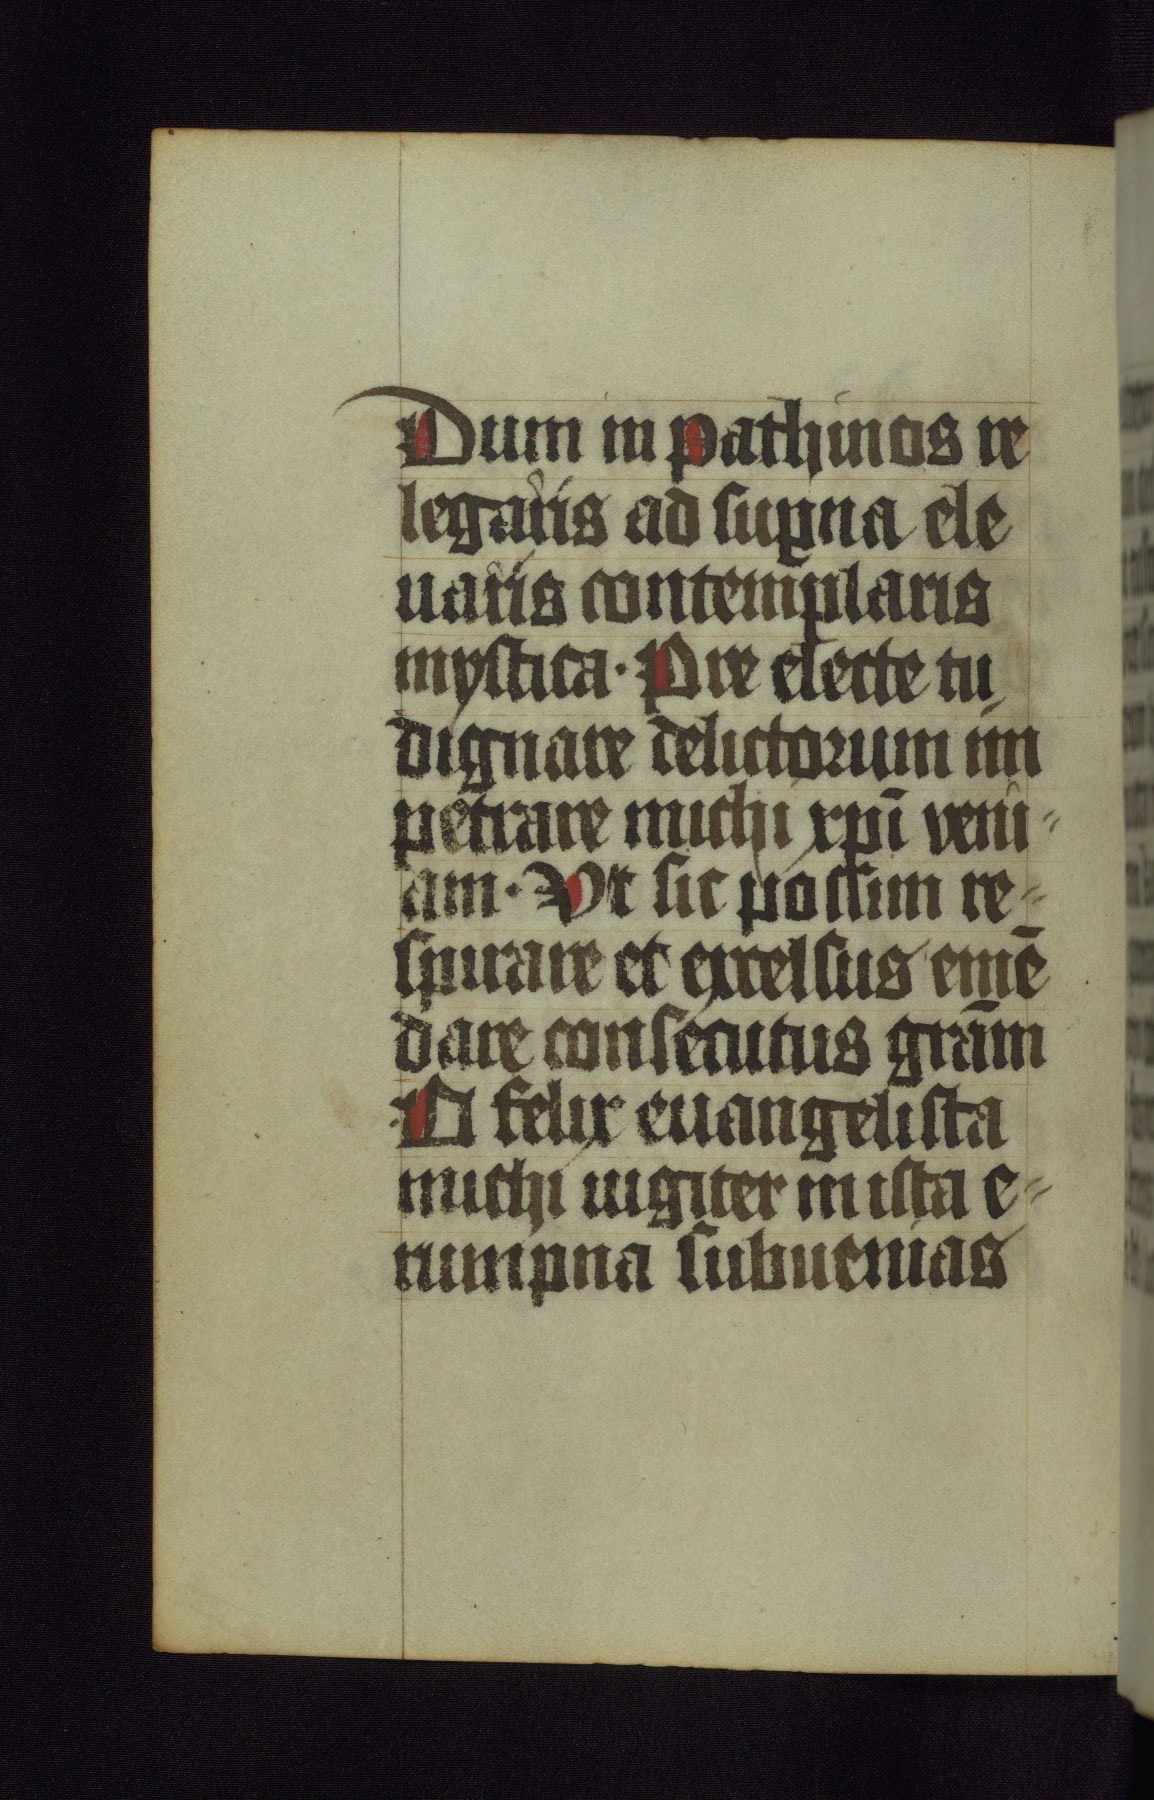 Dum in pathmos re
legaris ad supna ele
uaris contemplaris
mystica. Pre electe tu
dignare delictorum im
petrare michi xpī veni-
am. Ut sic possim re-
spirare et excelsus emē
dare consecutus grām
O felix euangelista
michi iugiter in ista e-
rumpna subuenias